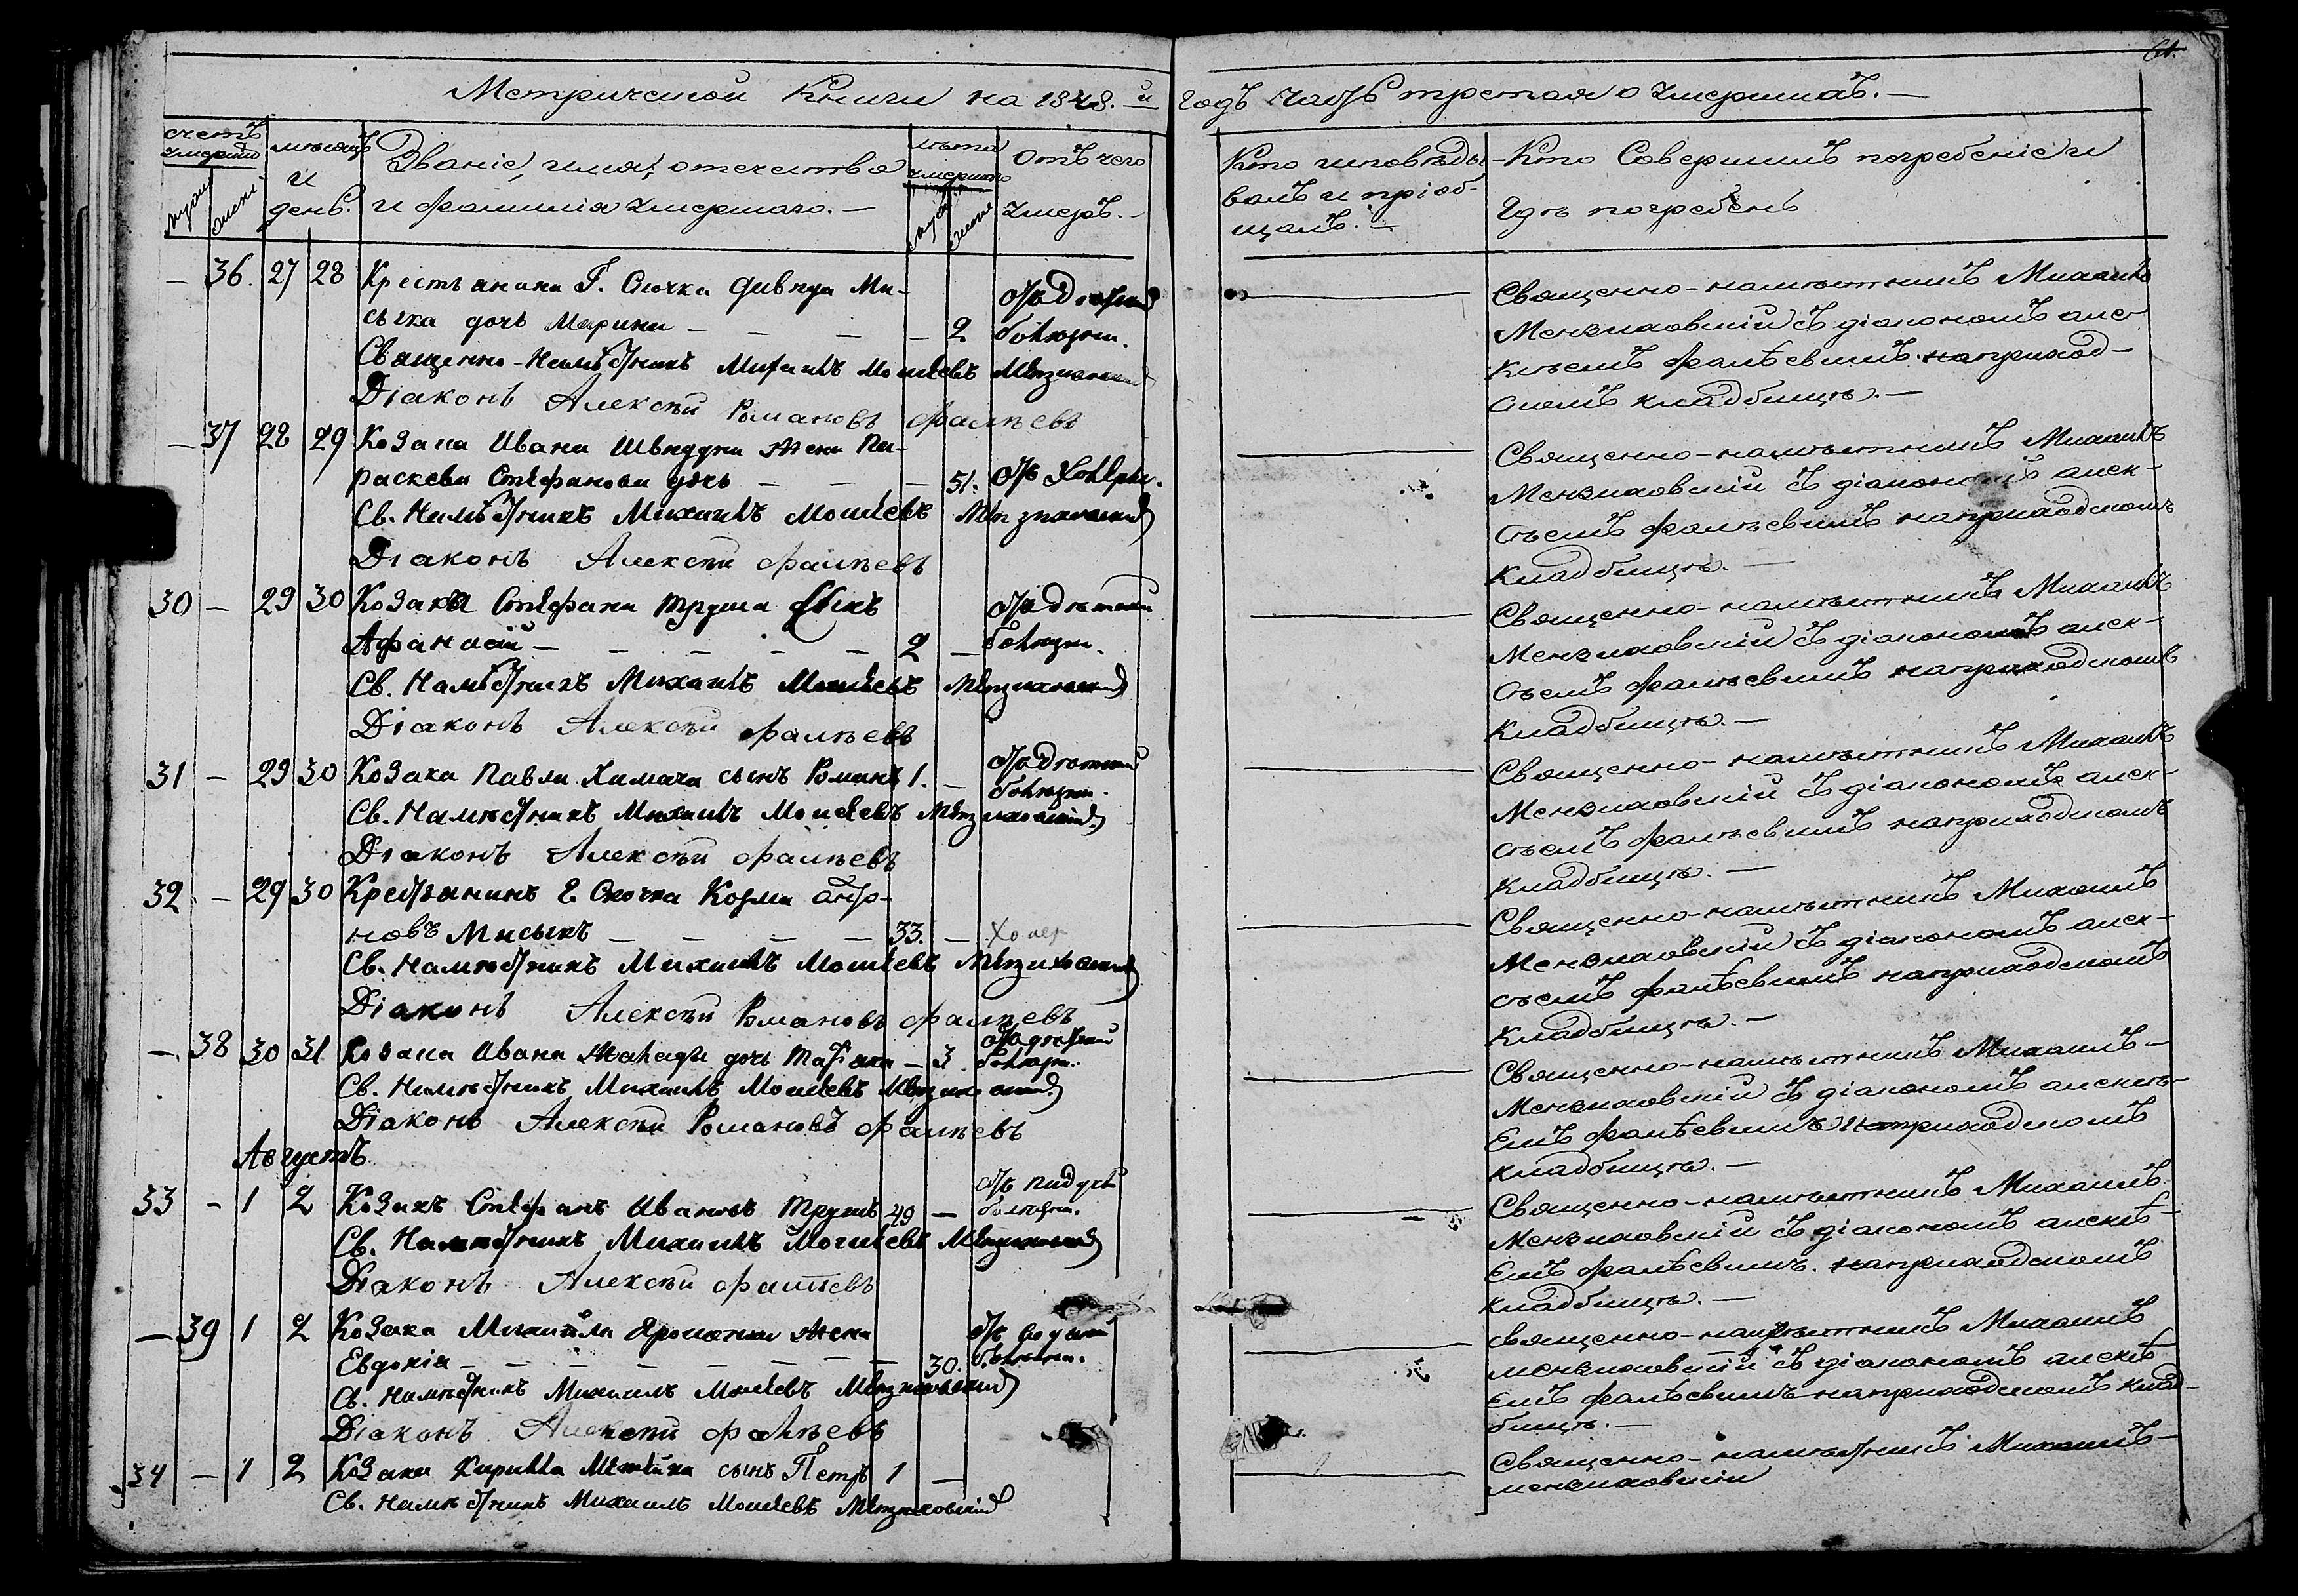 61.
Метрической Книги на 1848.й Годъ Часть третая о Умершихъ. —
счетъ умерши
мужес
женск.
мѣсяцъ
и
день.
Званіе, имя, отечество
и фамилія Умершаго. —
лѣта умершаго
Отъ чего
Умеръ. —
Кто исповѣды-
валъ и пріоб-
щалъ. —
Кто Совершилъ погребеніе и
Гдѣ погребенъ
— 36. 27 28 Крестьянина Г. Скочка
дочь Марина — — — — 2
болезни.
Священно-Намѣстникъ Михаилъ Моисеевъ Мензиховскій
Діаконъ Алексѣй Романовъ Фалѣевъ
Священно-намѣстникъ Михаилъ
Мензиховскій съ діакономъ Алек-
Фалѣевымъ на приход-
скомъ кладбищѣ. —
— 37 28 29 Козака Ивана жена Па-
раскева Стефанова дочь — — — 51.
Св. Намѣстникъ Михаилъ Моисеевъ Мензиховскій
Діаконъ Алексѣй Фалѣевъ
Священно-намѣстникъ Михаилъ
Мензиховскій съ діакономъ Алек-
сѣемъ Фалѣевымъ на приходскомъ
Кладбищѣ. —
30 — 29 30 Козака Стефана Труша сынъ
Афанасій — — — — — 2 —
болезни.
Св. Намѣстникъ Михаилъ Моисеевъ Мензиховскій
Діаконъ Алексѣй Фалѣевъ
Священно-намѣстникъ Михаилъ
Мензиховскій съ діакономъ Алек-
сѣемъ Фалѣевымъ на приходскомъ
Кладбищѣ. —
31 — 29 30 Козака Павла Химача сынъ Романъ 1. —
болезни.
Св. Намѣстникъ Михаилъ Моисеевъ Мензиховскій
Діаконъ Алексѣй Фалѣевъ
Священно-намѣстникъ Михаилъ
Мензиховскій съ діакономъ Алек-
сѣемъ Фалѣевымъ на приходскомъ
Кладбищѣ. —
32 — 29 30 Крестьянинъ Г. Скочка Козма
новъ Мисыкъ — — — — 33. — Холер
Св. Намѣстникъ Михаилъ Моисеевъ Мензиховскій
Діаконъ Алексѣй Романовъ Фалѣевъ
Священно-намѣстникъ Михаилъ
Мензиховскій съ діакономъ Алек-
сѣемъ Фалѣевымъ на приходскомъ
Кладбищѣ. —
— 38 30 31 Козака Ивана дочь — 3
болезни.
Св. Намѣстникъ Михаилъ Моисеевъ Мензиховскій
Діаконъ Алексѣй Романовъ Фалѣевъ
Священно-намѣстникъ Михаилъ —
Мензиховскій съ діакономъ Алексѣ-
Емъ Фалѣевымъ на приходскомъ
кладбищѣ. —
Августъ
33 — 1 2 Козакъ Стефанъ Ивановъ Трушъ 49 —
болезни.
Св. Намѣстникъ Михаилъ Моисеевъ Мензиховскій
Діаконъ Алексѣй Фалѣевъ
Священно-намѣстникъ Михаилъ
Мензиховскій съ діакономъ Алексѣ-
Емъ Фалѣевымъ на приходскомъ
кладбищѣ. —
— 39 1 2 Козака Михаила жена
Евдокія — — — — — — — 30.
Св. Намѣстникъ Михаилъ Моисеевъ Мензиховскій
Діаконъ Алексѣй Фалѣевъ
Священно-намѣстникъ Михаилъ
мензиховскій съ діакономъ Алексѣ
Емъ Фалѣевымъ на приходскомъ клад-
бищѣ. —
34 — 1 2 Козака Кирилла сынъ Петръ 1 —
Св. Намѣстникъ Михаилъ Моисеевъ Мензиховскій
Священно-намѣстникъ Михаилъ —
мензиховскій